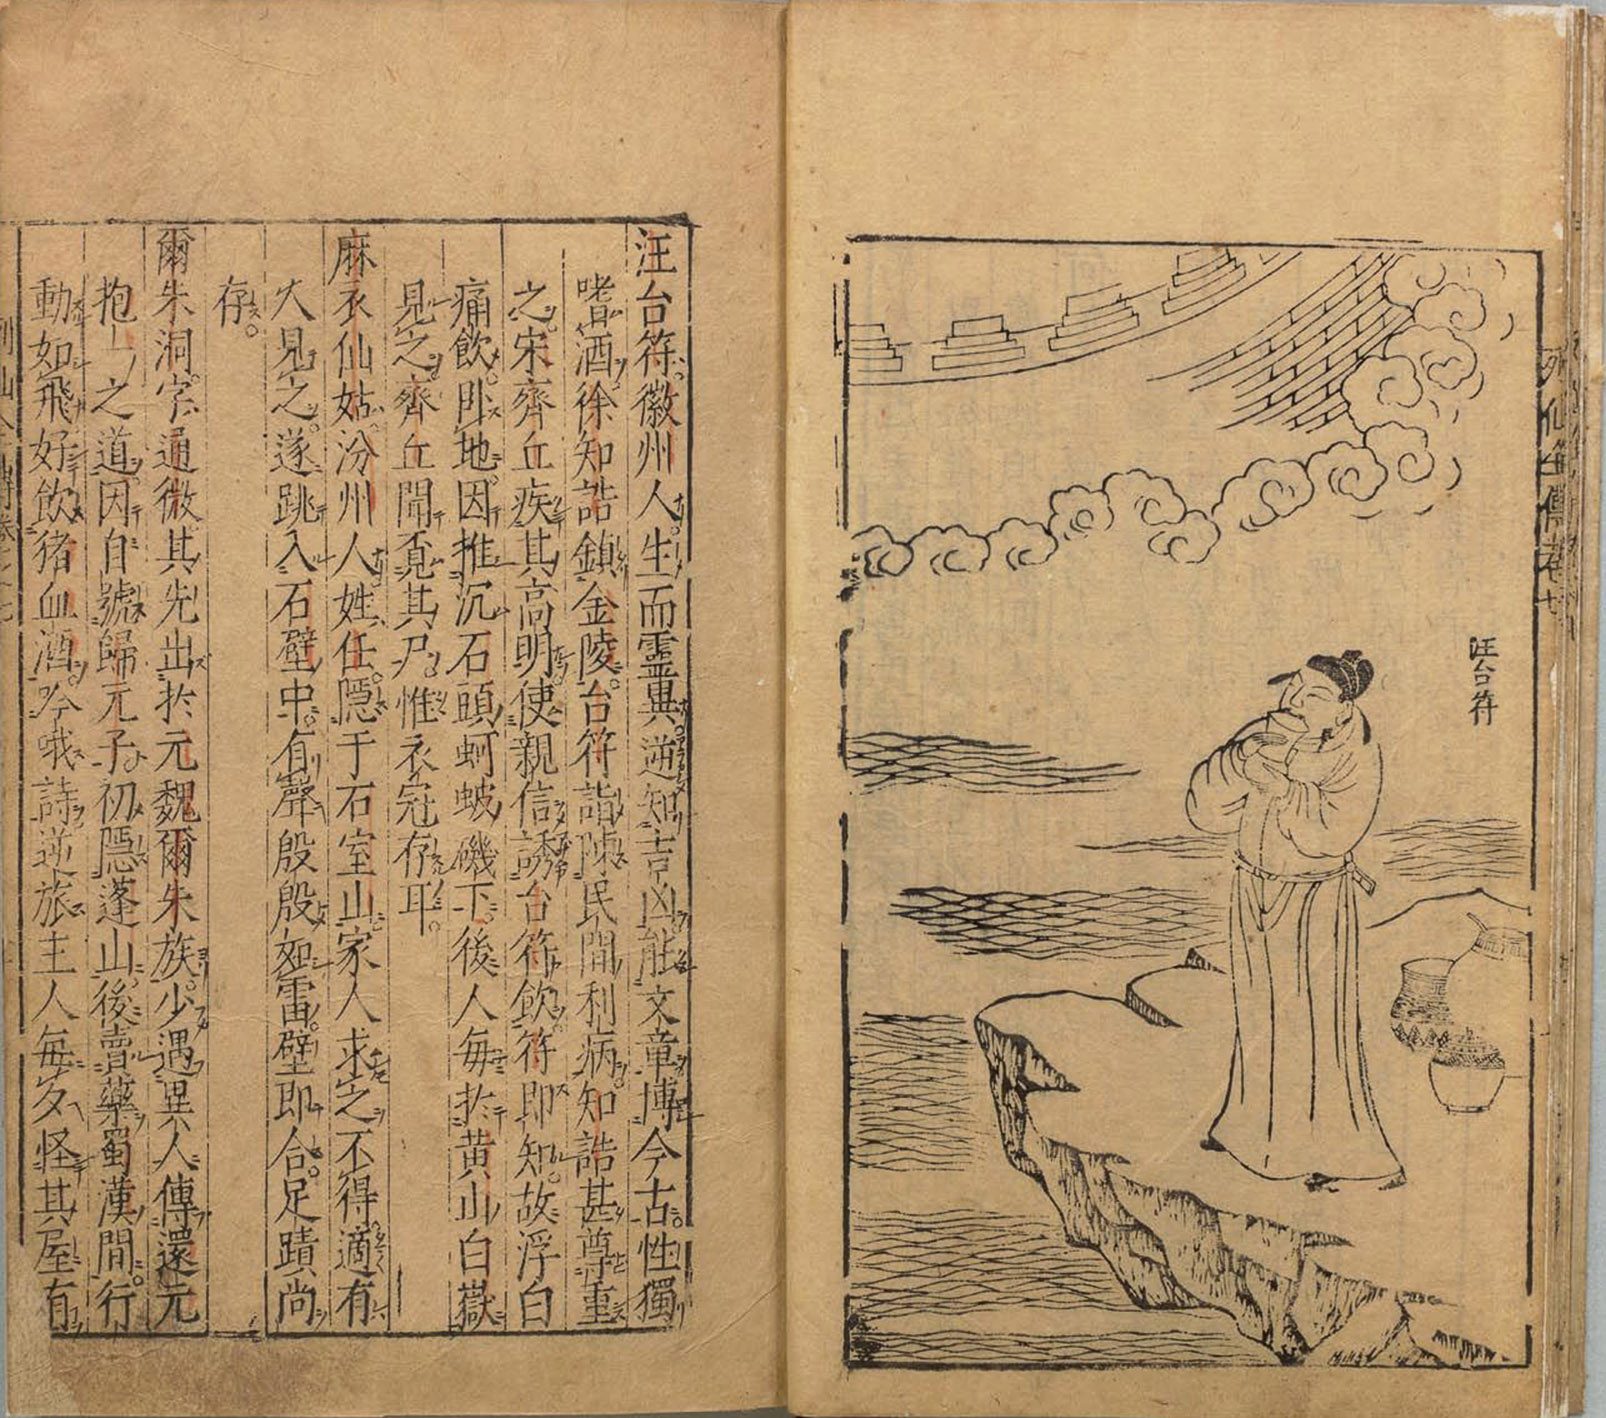 列仙全傳卷七
汪台符
汪台符徽州人生而靈異逆知吉凶能文章博今古性獨
嗜酒徐知誥鎮金陵台符詣陳民間利病知誥甚尊重
之宋齊丘疾其高明使親信誘台符飲符即知故浮白
痛飲卧地因推沉石頭蚵蚾磯下後人毎扵黄山白嶽
見之齊丘聞覔其尸惟衣冠存耳
麻衣仙姑汾州人姓任隱于石室山家人求之不得適有
人見之遂跳入石壁中有聲殷殷如雷壁即合足蹟尚
存
爾朱洞字通微其先出扵元魏爾朱族少遇異人傳還元
抱一之道因自號歸元子初隱蓬山後賣藥蜀漢間行
動如飛好飲猪血酒吟哦詩逆旅主人毎夕怪其屋有
列仙全傳卷之七